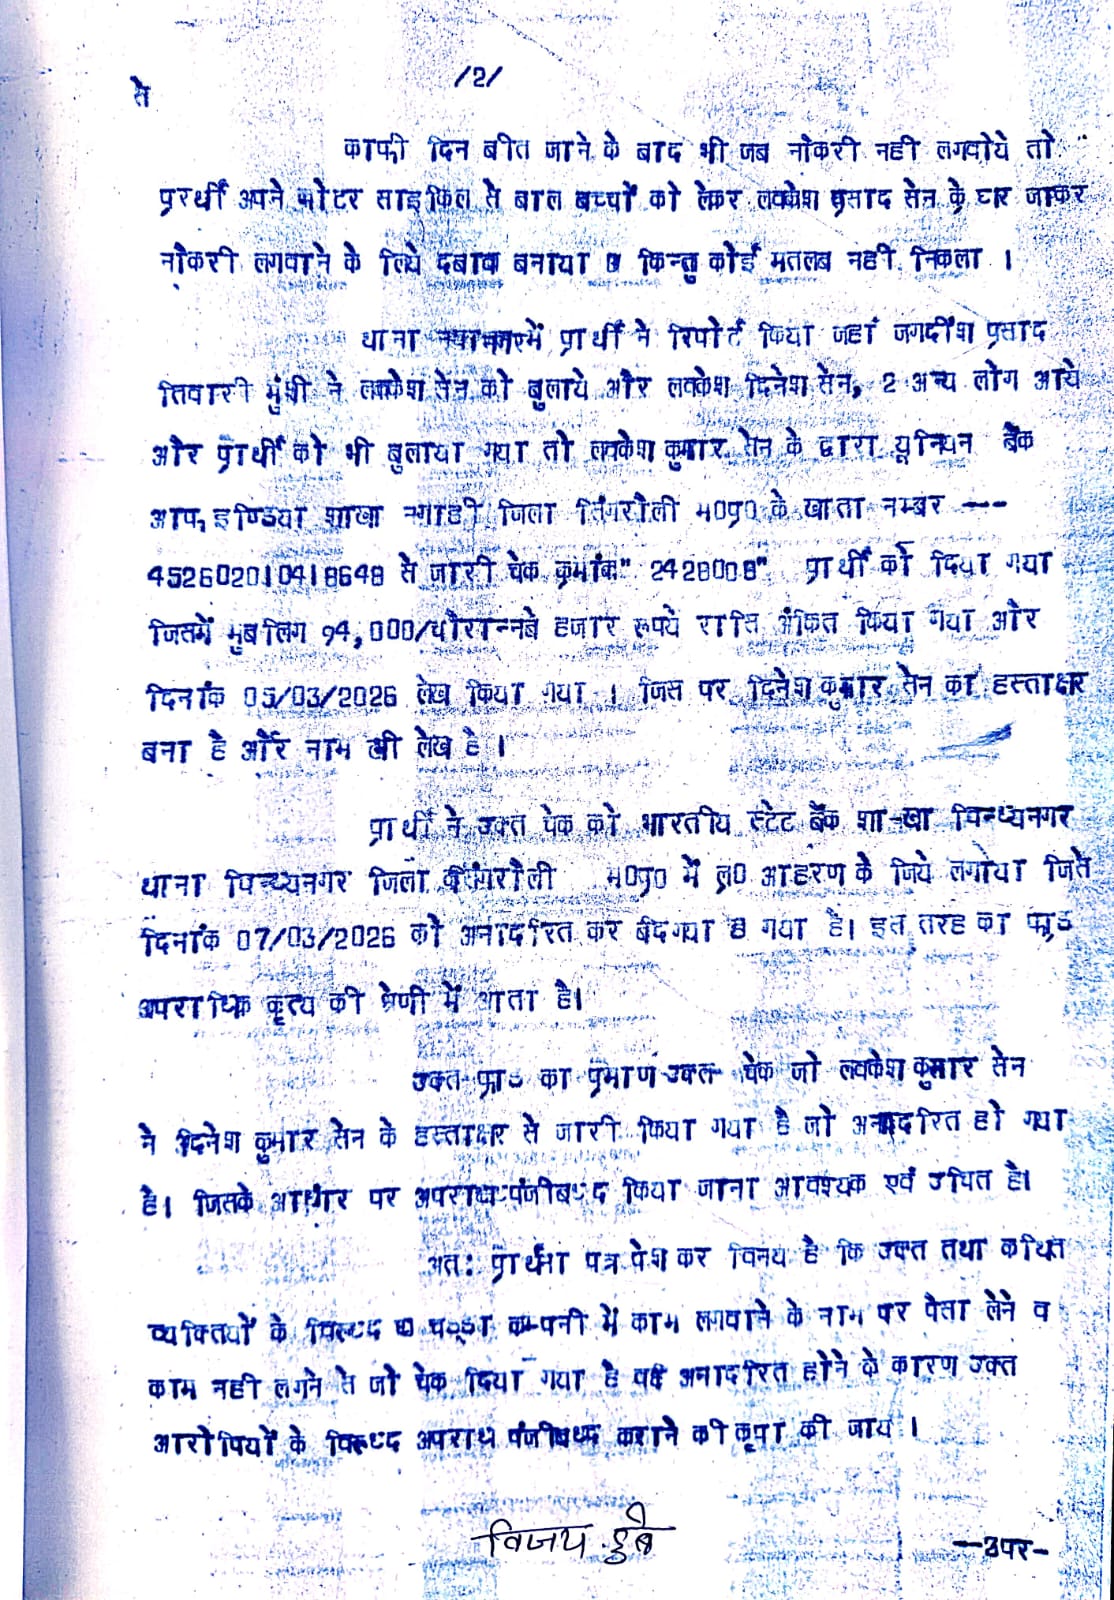 /2/
से
काफी दिन बीत जाने के बाद भी जब नौकरी नही लगवाये तो
प्रर्थी अपने मोटर साइकिल से बाल बच्चों को लेकर लवकेश प्रसाद सेन के घर जाकर
नौकरी लगवाने के लिये दबाव बनाया किन्तु कोई मतलब नही निकला ।
थाना में प्रार्थी ने रिपोर्ट किया जहां जगदीश प्रसाद
तिवारी मुंशी ने लवकेश सेन को बुलाये और लवकेश दिनेश सेन, 2 अन्य लोग आये
और प्रार्थी को भी बुलाया गया तो लवकेश कुमार सेन के द्वारा यूनियन बैंक
आफ इण्डिया शाखा नगाही जिला सिंगरौली म0प्र0 के खाता नम्बर ---
452602010418648 से जारी चेक क्रमांक" 2428008" प्रार्थी को दिया गया
जिसमें मुबलिग 94,000/चौरान्नबे हजार रूपये राशि अंकित किया गया और
दिनांक 05/03/2026 लेख किया गया । जिस पर दिनेश कुमार सेन का हस्ताक्षर
बना है और नाम भी लेख है ।
प्रार्थी ने उक्त चेक को भारतीय स्टेट बैंक शाखा विन्ध्यनगर
थाना विन्ध्यनगर जिला सिंगरौली म0प्र0 में आहरण के लिये लगाया जिसे
दिनांक 07/03/2026 को अनादरित कर गया है। इस तरह का फ्राड
अपराधिक कृत्य की श्रेणी में आता है।
उक्त फ्राड का प्रमाण उक्त चेक जो लवकेश कुमार सेन
ने दिनेश कुमार सेन के हस्ताक्षर से जारी किया गया है जो अनादरित हो गया
है। जिसके आधार पर अपराध पंजीबध्द किया जाना आवश्यक एवं उचित है।
अत: प्रार्थना पत्र पेश कर विनय है कि उक्त तथा कथित
व्यक्तियों के विरूध्द चड्ढा कम्पनी में काम लगवाने के नाम पर पैसा लेने व
काम नही लगने से जो चेक दिया गया है अनादरित होने के कारण उक्त
आरोपियों के विरूध्द अपराध पंजीबध्द कराने की कृपा की जाय ।
विजय दुबे
--उपर-